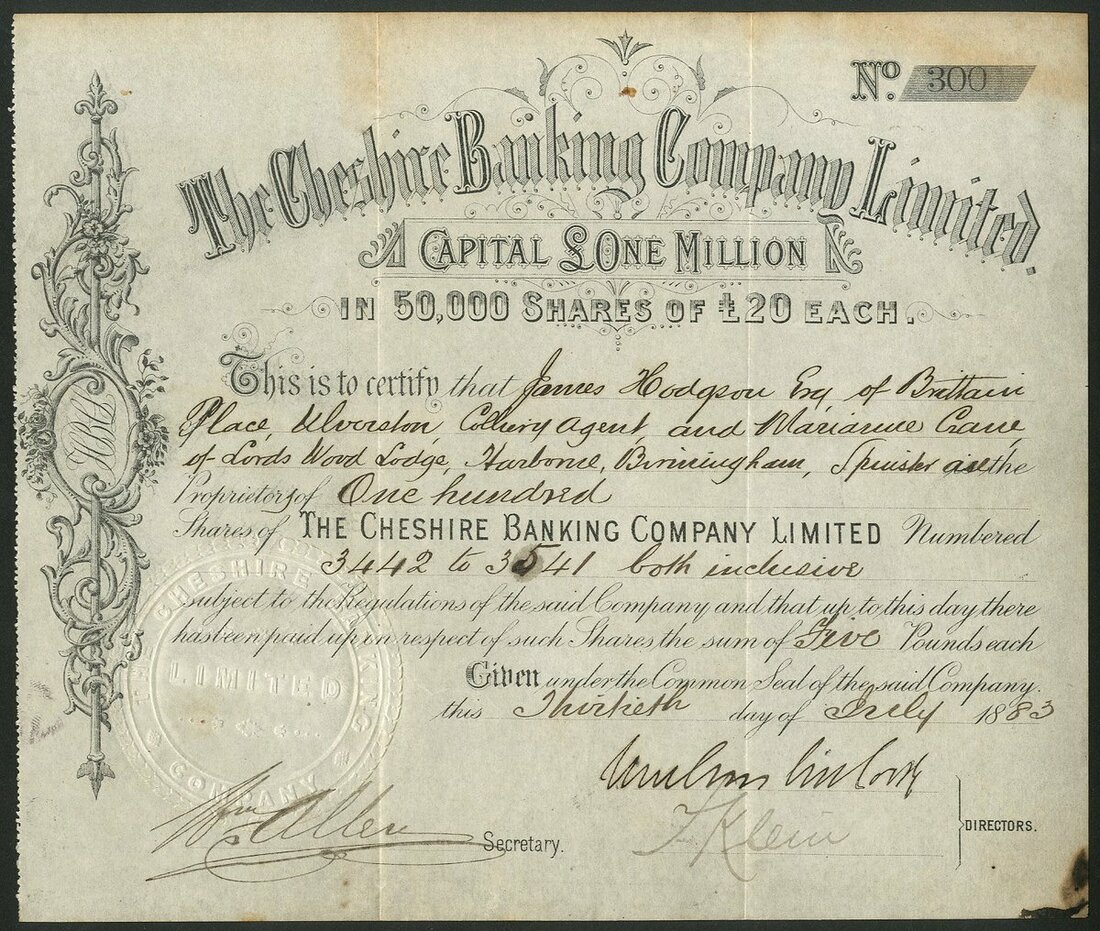 No. 300
The Cheshire Banking Company Limited.
CAPITAL £ONE MILLION
IN 50,000 SHARES OF £20 EACH.
This is to certify that James Hodgson Esq of Brittain
Place, Ulverston, Colliery Agent, and Marianne Crane
of Lords Wood Lodge, Harborne, Birmingham, Spinster are the
Proprietors of One hundred
Shares of THE CHESHIRE BANKING COMPANY LIMITED Numbered
3442 to 3541 both inclusive
subject to the Regulations of the said Company and that up to this day there
has been paid up in respect of such Shares, the sum of Five Pounds each
Given under the Common Seal of the said Company.
this Thirtieth day of July 1883
THE CHESHIRE BANKING COMPANY
LIMITED
Wm Allen Secretary.
F Klein
DIRECTORS.